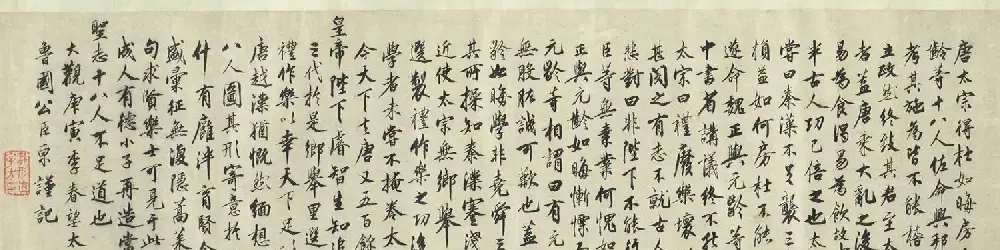 唐太宗得杜如晦房
齡等十八人佐命興邦
考其施為皆不能稽
立政然終致其君至太
者蓋唐乘大亂之後
易為食渴易為飲故
半古人功已倍之也
嘗曰秦漢不足襲三
損益如何房杜不能
遂命魏正與元齡等
中書省講議終不能
太宗曰禮廢樂壞
甚閔之有志不就古人
悲對曰非陛下不能行
臣等無素業何愧如
正與元齡如晦慚慄
元齡等相謂曰有元
無股肱誠可歎也蓋
齡如晦學非堯舜三
其所操知秦漢蹇淺
近使太宗無鄉舉
選製禮作樂之功後
學者未嘗不掩卷太
今天下去唐又五百餘
皇帝陛下睿智生知追
三代於是鄉舉里選
禮作樂以幸天下足
唐越漢猶慨然緬想
八人圖其形寄意於
什有廱泮育賢
威彙征無復隱蒿萊
句求賢樂士可見于此
成人有德小子再造
聖志十八人不足道也
大觀庚寅季春望太
魯國公臣京謹記